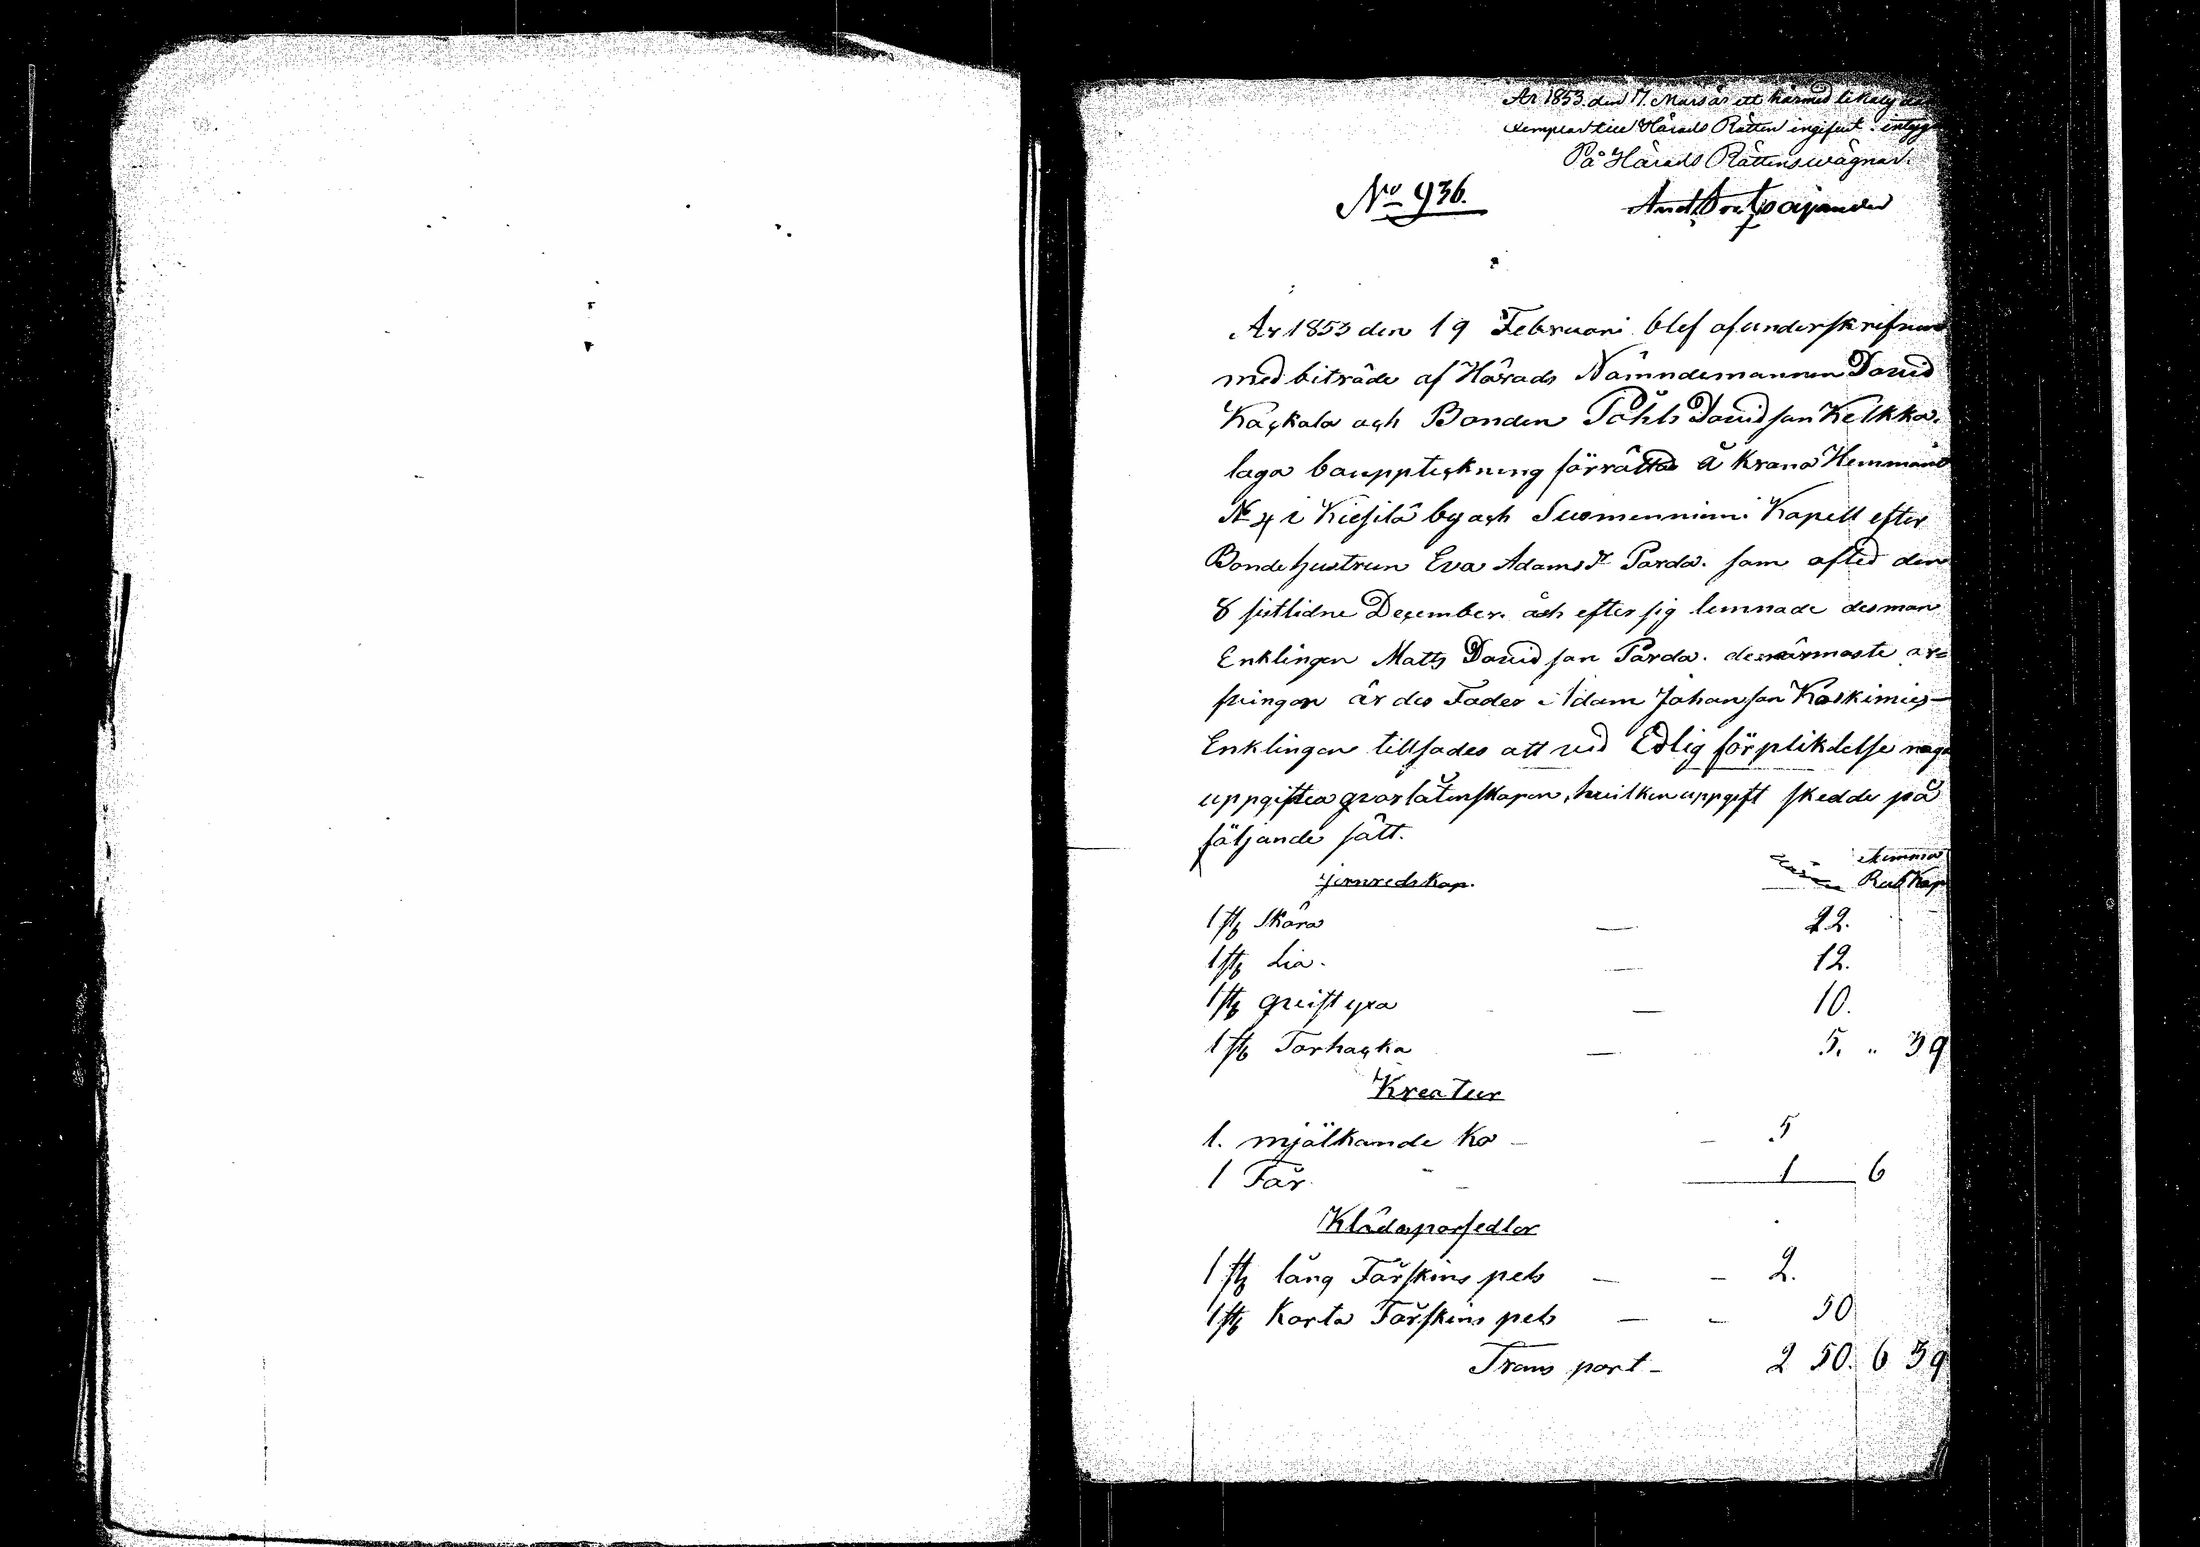 År 1853 den 17. Mars är ett härmed lika lydande
exemplar till Härads Rätten ingifvit. intygar
På Härads Rättens wägnar.
No 936.
År 1853 den 19 Februari blef af underskrifnne
med biträde af Härads Nämndemannen David
Kackala och Bonden Påhls Davidson Kelkka.
laga bouppteckning förrättad å Krono Hemmanet
No 4 i Kiesilä by och Suomenniemi Kapell efter
Bondehustrun Eva Adamsdr Parda. som afled den
8 sistlidne December. och efter sig lemnade des man
Enklingen Matts Davidson Parda. des närmaste ar=
fvingar är des Fader Adam Johanson Koskimies
Enklingen tillsades att vid Edlig förplikdelse noga
uppgifva qvarlåtenskapen, hvilken uppgift skedde på
följande sätt.
jernredskap. Summa
Rub Kop
1 st Skära — 22.
1 st Lia. — 12.
1 st qvistyxa — 10.
1 st Torhacka — 5. " 39
Kreatur
1. mjölkande Ko — 5
1 Får — 1 6
Klädesporsedlar
1 st lång Fårskins pels — 2.
1 st Korta Fårskins pels — 50
Transport — 2 50. 6 39